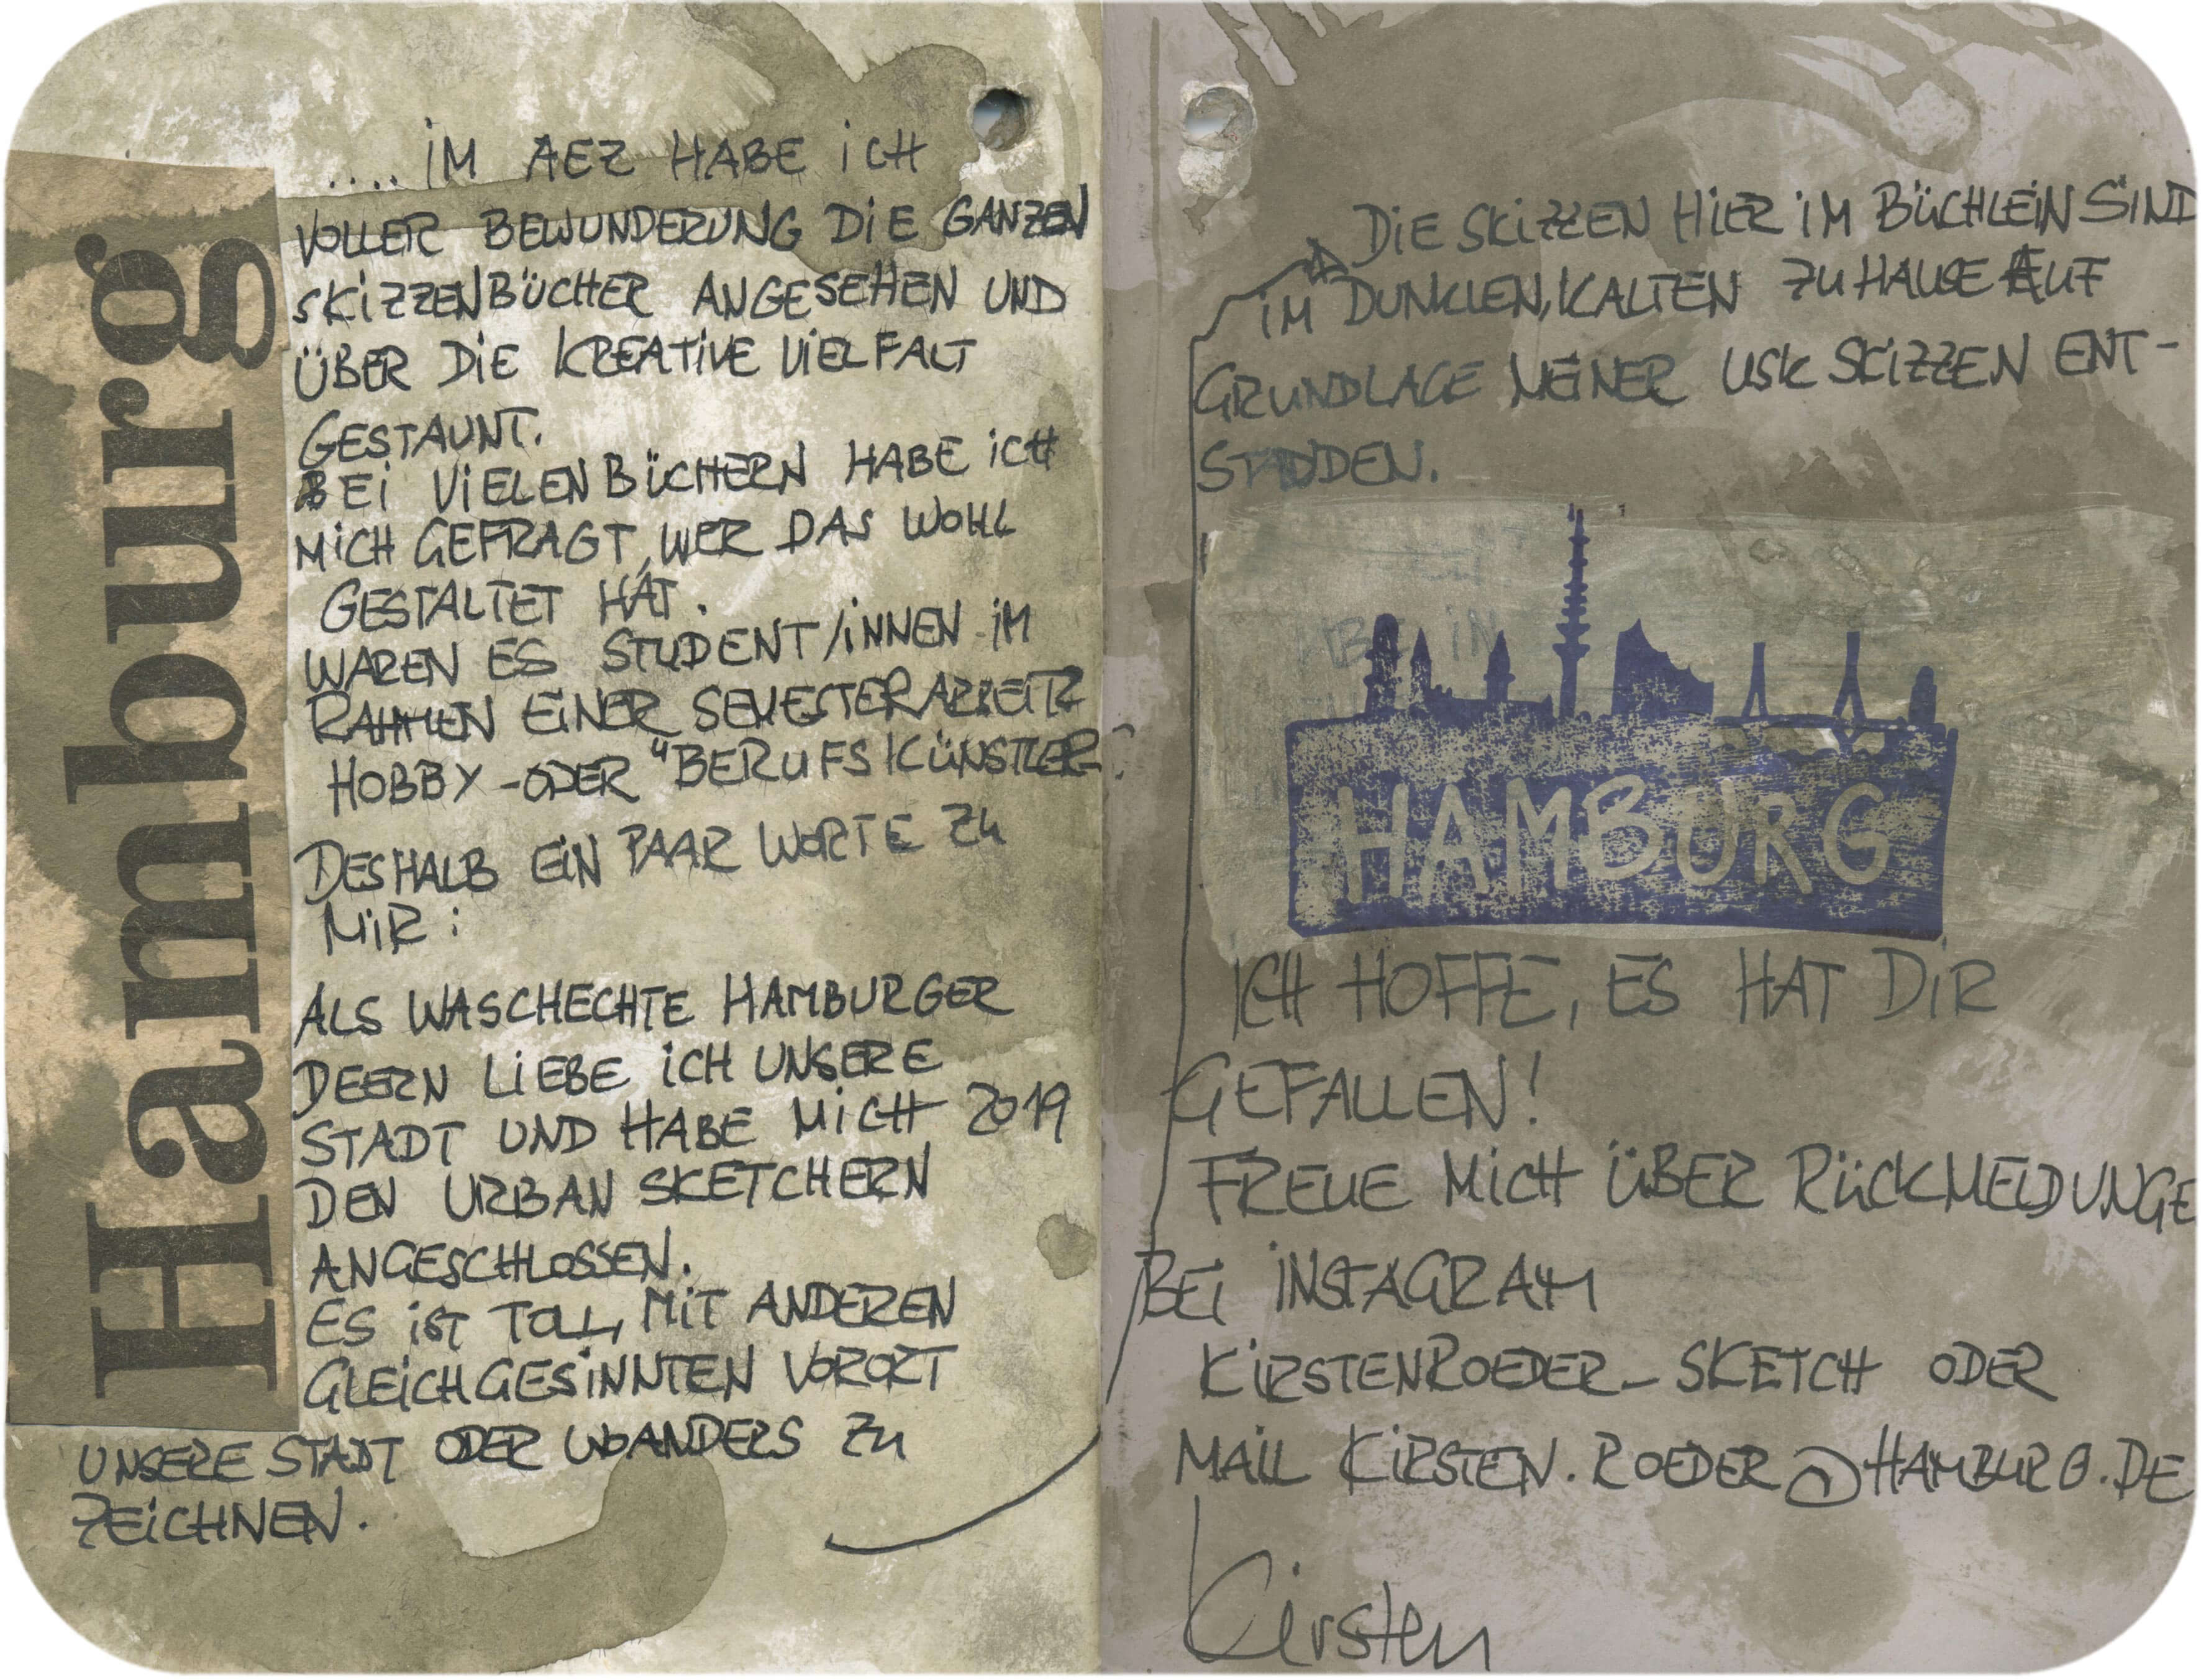 Hamburg
.... IM AEZ HABE ICH
VOLLER BEWUNDERUNG DIE GANZEN
SKIZZENBÜCHER ANGESEHEN UND
ÜBER DIE KREATIVE VIELFALT
GESTAUNT.
BEI VIELEN BÜCHERN HABE ICH
MICH GEFRAGT, WER DAS WOHL
GESTALTET HAT.
WAREN ES STUDENT/INNEN IM
RAHMEN EINER SEMESTERARBEIT?
HOBBY-ODER "BERUFSKÜNSTLER?
DESHALB EIN PAAR WORTE ZU
MIR:
ALS WASCHECHTE HAMBURGER
DEERN LIEBE ICH UNSERE
STADT UND HABE MICH 2019
DEN URBAN SKETCHERN
ANGESCHLOSSEN.
ES IST TOLL, MIT ANDEREN
GLEICHGESINNTEN VORORT
UNSERE STADT ODER WOANDERS ZU
ZEICHNEN.
DIE SKIZZEN HIER IM BÜCHLEIN SIND
IM DUNKLEN, KALTEN ZUHAUSE AUF
GRUNDLAGE MEINER USK SKIZZEN ENT-
STANDEN.
HAMBURG
ICH HOFFE, ES HAT DIR
GEFALLEN!
FREUE MICH ÜBER RÜCKMELDUNGE
BEI INSTAGRAM
KIRSTENROEDER_SKETCH ODER
MAIL KIRSTEN.ROEDER@HAMBURG.DE
Kirsten